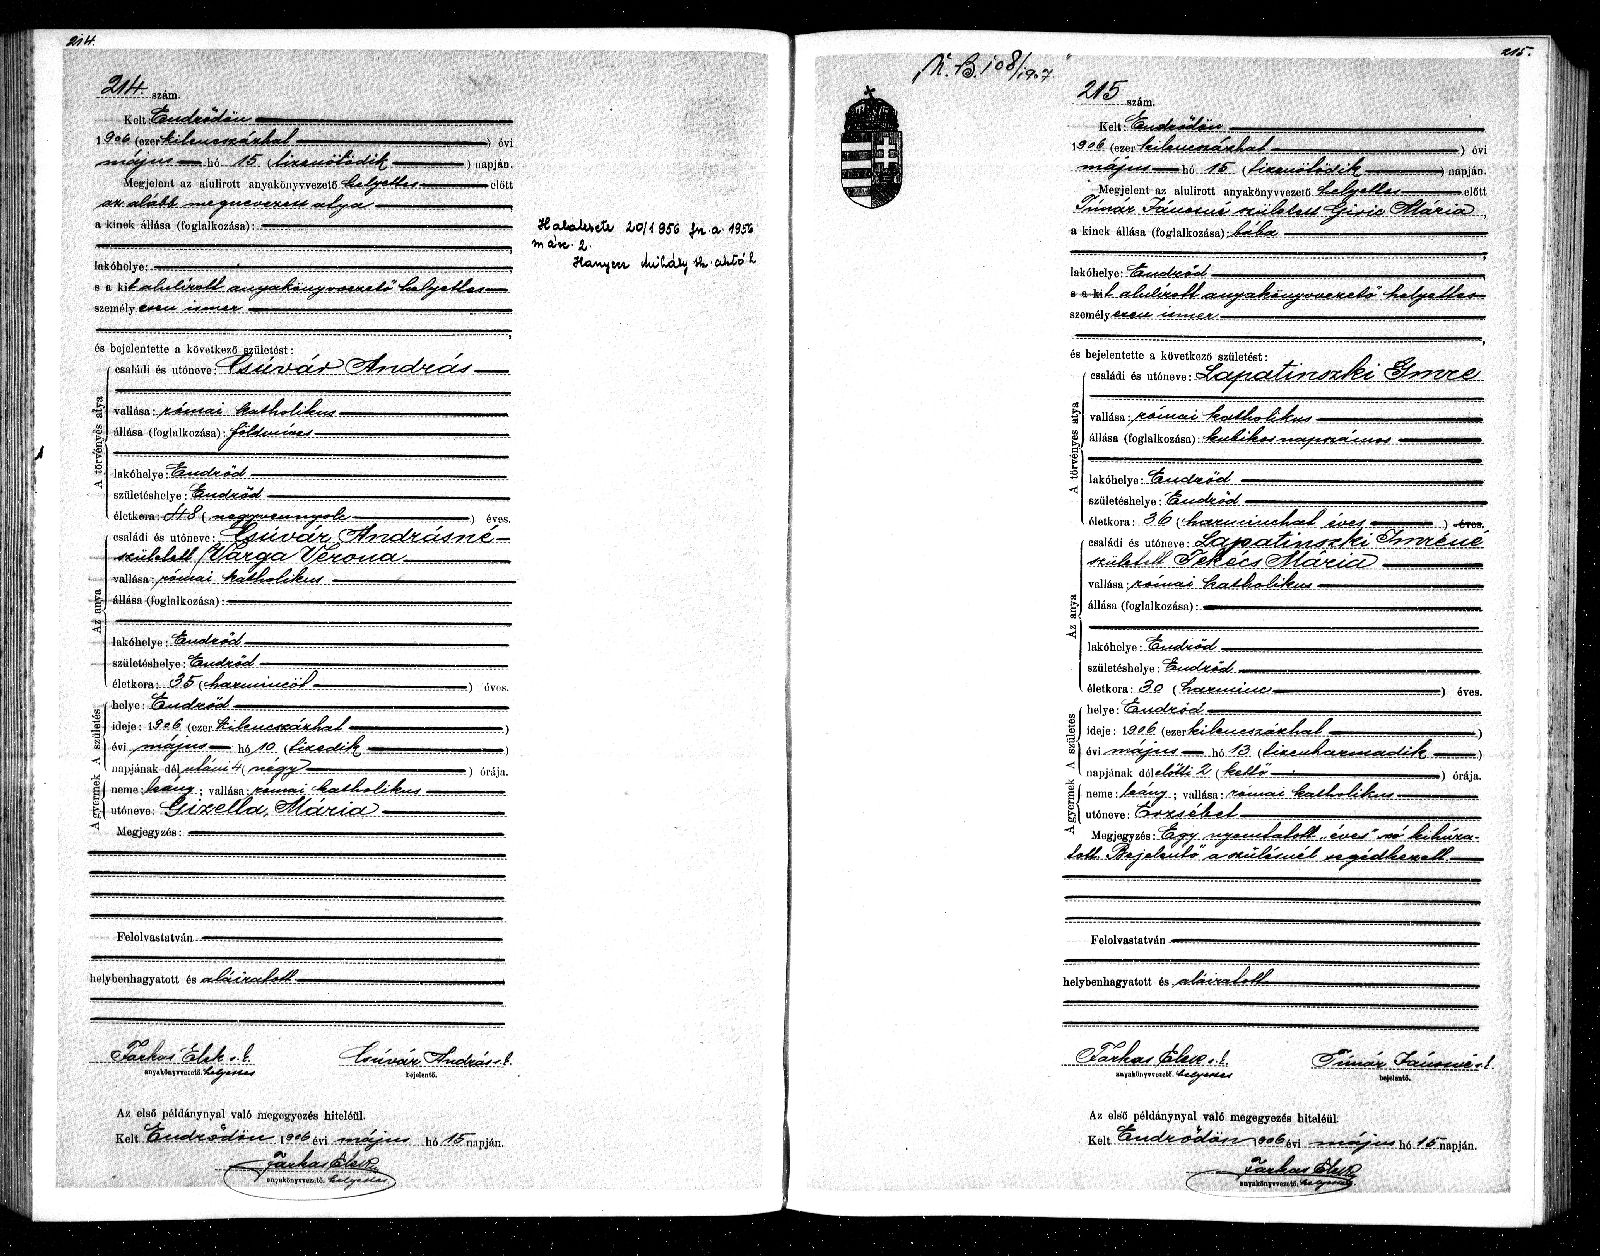 214.
214. szám.
Kelt Endrődön
1906 (ezer kilencszázhat) évi
május hó 15 (tizenötödik) napján.
Megjelent az alulirott anyakönyvvezető helyettes előtt
az alább megnevezett atya
a kinek állása (foglalkozása):
lakóhelye:
s a kit alulírott anyakönyvvezető helyettes
személyesen ismer
és bejelentette a következő születést:
A törvényes atya
családi és utóneve: Csúvár András
vallása: római katholikus
állása (foglalkozása): földmíves
lakóhelye: Endrőd
születéshelye: Endrőd
életkora: 48 (negyvennyolc) éves.
Az anya
családi és utóneve: Csúvár Andrásné
született Varga Verona
vallása: római katholikus
állása (foglalkozása):
lakóhelye: Endrőd
születéshelye: Endrőd
életkora: 35 (harmincöt) éves.
A születés
helye: Endrőd
ideje: 1906 (ezer kilencszázhat)
évi május hó 10 (tizedik)
napjának dél utáni 4 (négy) órája.
A gyermek
neme: leány; vallása: római katholikus
utóneve: Gizella, Mária
Megjegyzés:
Felolvastatván
helybenhagyatott és aláíratott
Farkas Elek s. k. Csúvár András s. k.
anyakönyvvezető helyettes bejelentő.
Az első példánynyal való megegyezés hiteléül.
Kelt Endrődön 1906 évi május hó 15 napján.
Farkas Elek
anyakönyvvezető. helyettes
Halálesete 20/1956 fn. a. 1956
márc. 2.
Hanyecz Mihály
N. B. 108/1907
215.
215 szám.
Kelt: Endrődön
1906 (ezer kilencszázhat) évi
május hó 15 (tizenötödik) napján.
Megjelent az alulirott anyakönyvvezető helyettes előtt
Tímár Jánosné született Giric Mária,
a kinek állása (foglalkozása): bába
lakóhelye: Endrőd
s a kit alulírott anyakönyvvezető helyettes
személyesen ismer
és bejelentette a következő születést:
A törvényes atya
családi és utóneve: Lapatinszki Imre
vallása: római katholikus
állása (foglalkozása): kubikos napszámos
lakóhelye: Endrőd
születéshelye: Endrőd
életkora: 36 (harminchat éves) éves.
Az anya
családi és utóneve: Lapatinszki Imréné
született Tekécs Mária
vallása: római katholikus
állása (foglalkozása):
lakóhelye: Endrőd
születéshelye: Endrőd
életkora: 30 (harminc) éves.
A születés
helye: Endrőd
ideje: 1906 (ezer kilencszázhat)
évi május hó 13 (tizenharmadik)
napjának délelőtti 2 (kettő) órája.
A gyermek
neme: leány; vallása: római katholikus
utóneve: Erzsébet
Megjegyzés: Egy nyomtatott "éves" szó kihúza-
tott. Bejelentő a szülésnél segédkezett
Felolvastatván
helybenhagyatott és aláíratott
Farkas Elek s. k. Tímár Jánosné s. k.
anyakönyvvezető. helyettes bejelentő.
Az első példánynyal való megegyezés hiteléül.
Kelt Endrődön 1906 évi május hó 15 napján.
Farkas Elek
anyakönyvvezető. helyettes